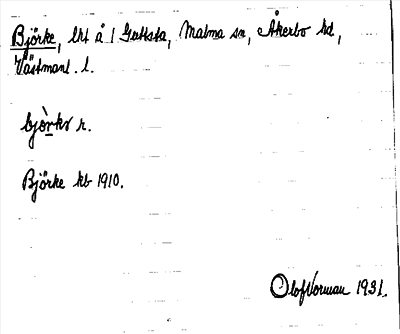 Björke, lht å 1 Guttsta, Malma sn, Åkerbo hd,
Västmanl. l.
bjö̀rkɘ r.
Björke kb 1910.
Olof Norman 1931.